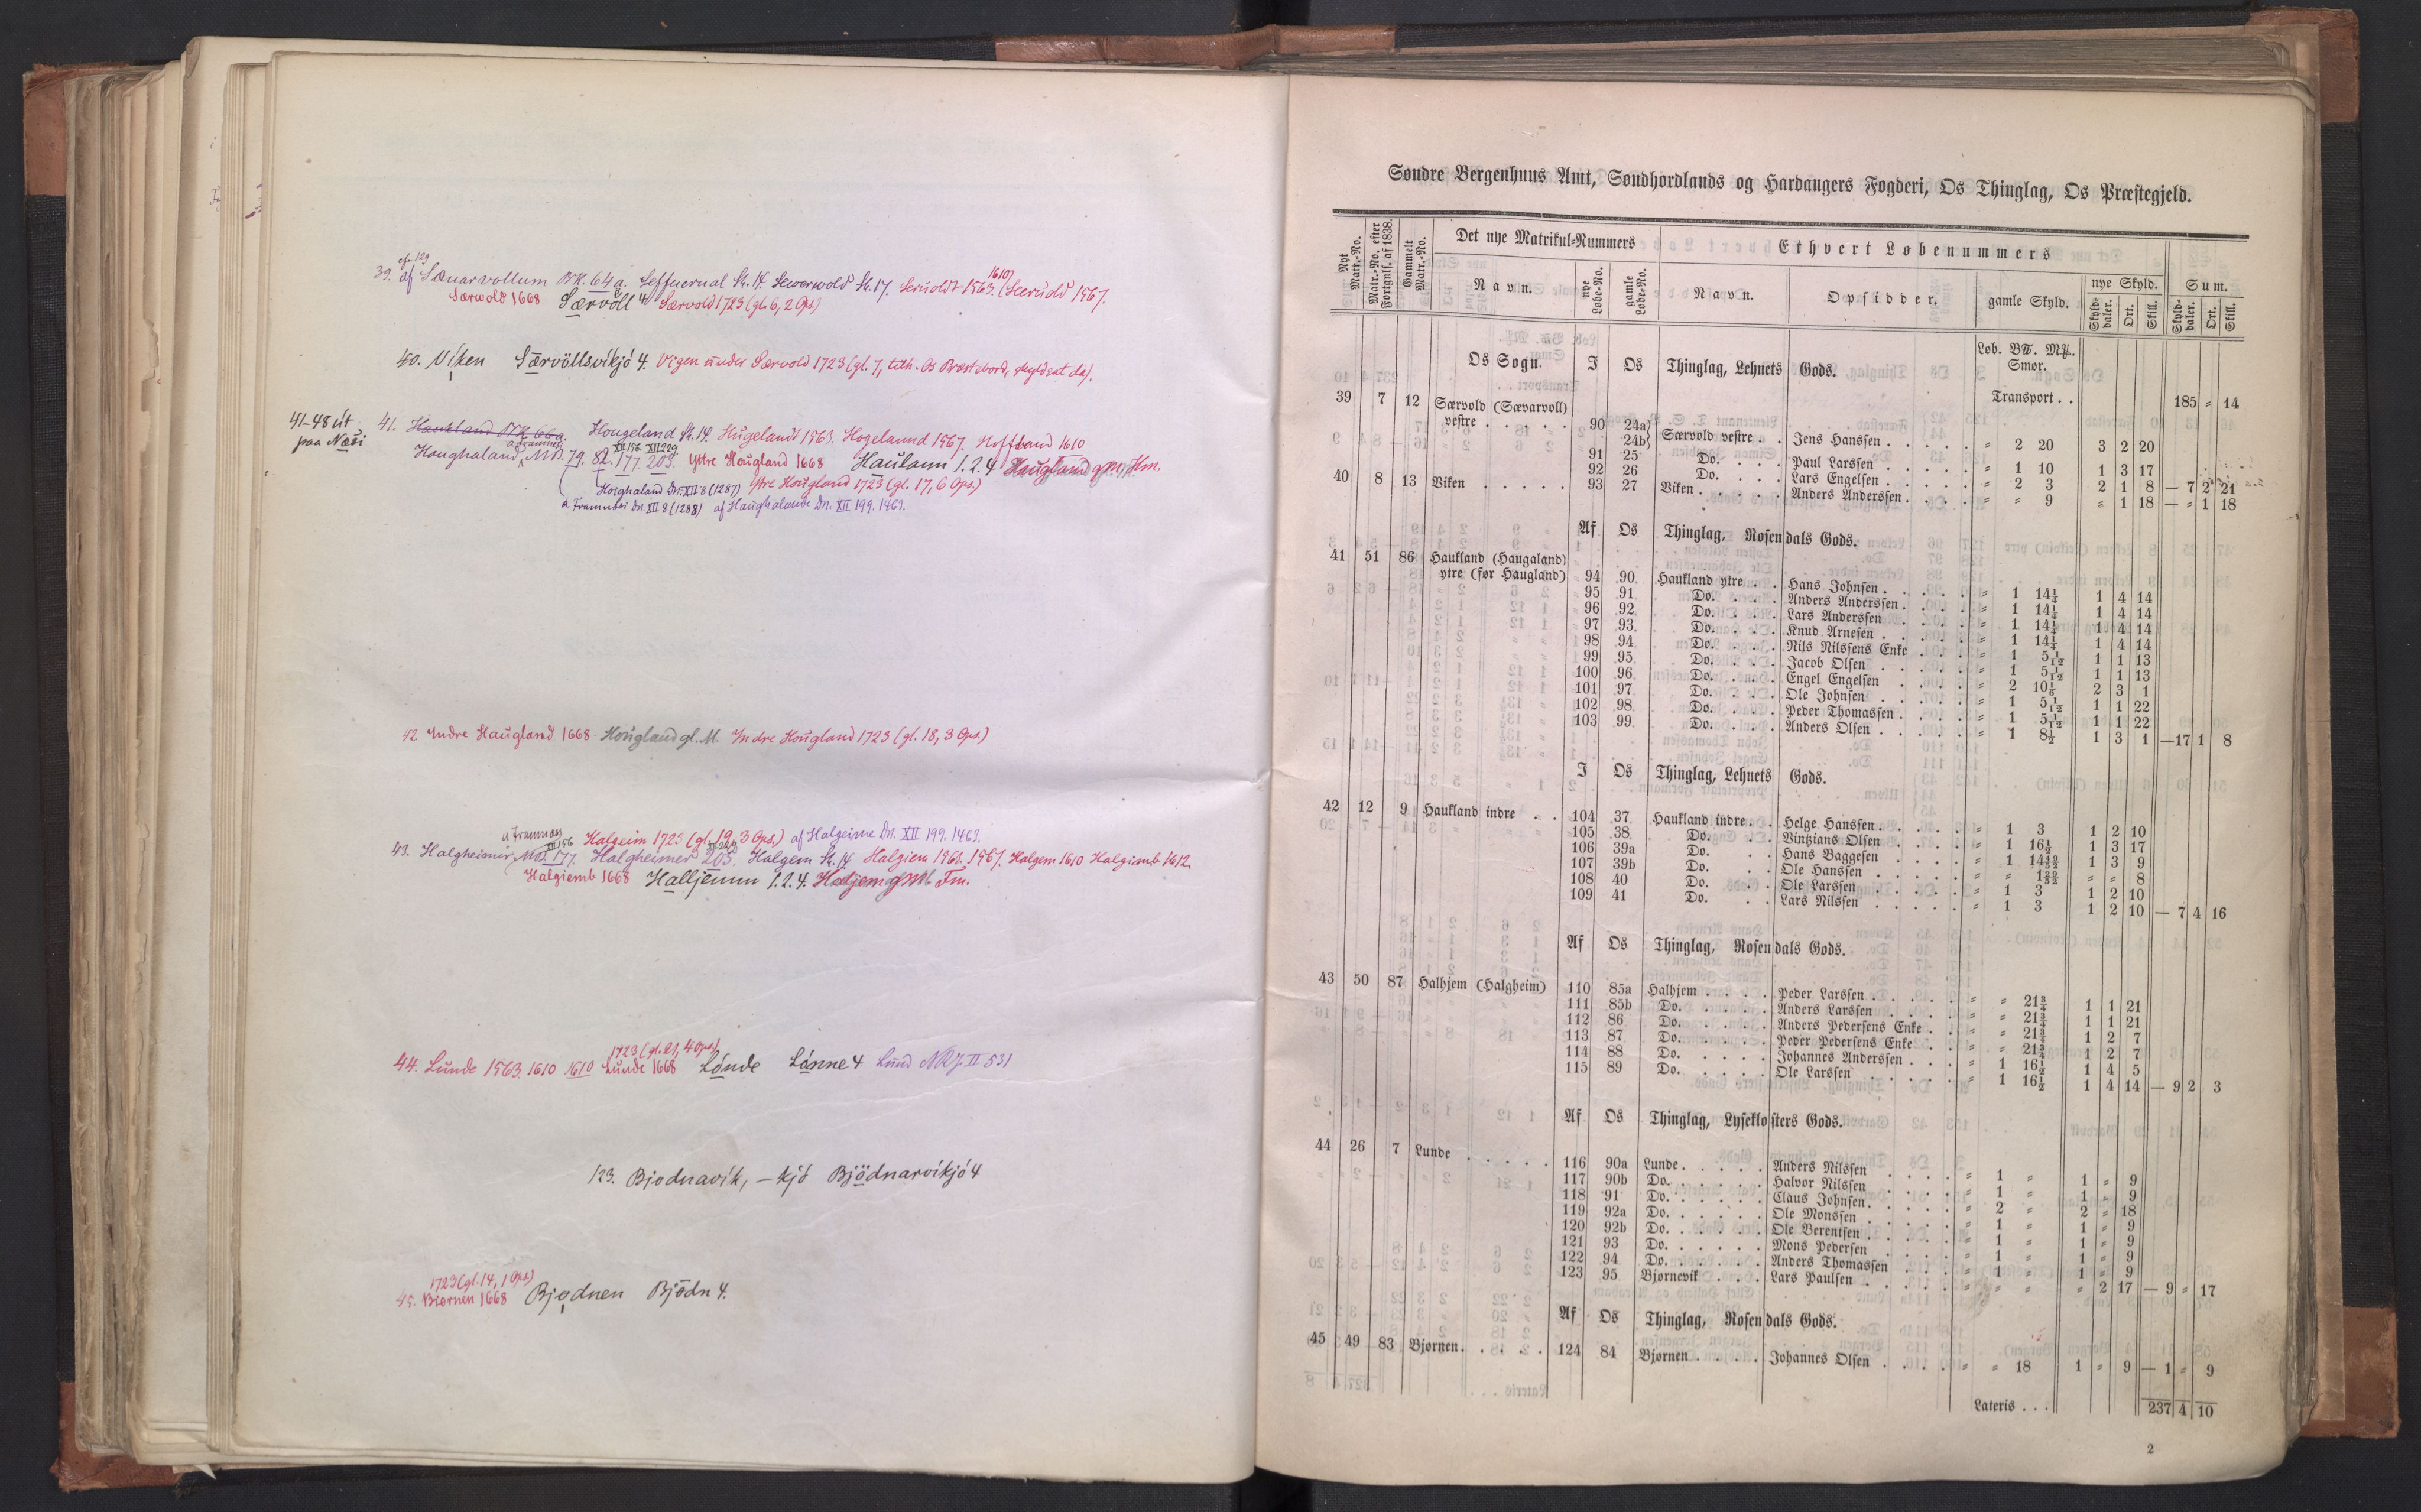 cfr. 129
39. af Sæuarvollum BK. 64a. Seffuerual St. 14. Sewerwold St. 17. Seruoldt 1563. (Seeruold 1567.
1610
Særwold 1668 Særvöll 4 Særvold 1723 (gl. 6, 2 Ops.)
40. Viken Særvöllsvikjó 4. Vigen under Særvold 1723 (gl. 7, tilh. Os Præstebord, skyldsat da).
41-48 út paa Næsi
41. Haukland BK. 66a. Hougeland St. 14. Hugelandt 1563. Hogelannd 1567. Hoffland 1610
Haughaland, MB. 79. 82. 177. 203. Yttre Haugland 1668 Haulann 1. 2. 4 Haugland
Hoighaland Dn. XII 8 (1287) Ytre Hougland 1723 (gl. 17, 6 Ops.)
a Framnesi Dn. XII 8 (1288) af Haughalande Dn. XII 199. 1463.
42 Indre Haugland 1668 Hougland gl. M. Indre Hougland 1723 (gl. 18, 3 Ops.)
a Framnæs Halgeim 1723 (gl. 19, 3 Ops.) af Halgeime Dn. XII 199. 1463.
43. Halgheimir, MB. 177. Halgheimer 203. Halgem St. 14 Halgien 1563. 1567. Halgem 1610 Halgiemb 1612.
Halgiemb 1668 Halljemm 1. 2. 4.
1723 (gl. 21, 4 Ops.)
44. Lunde 1563. 1610 1610 Lunde 1668 Lónde Lónne 4 Lund NRJ. II 531
123. Bjodnavik, – kjó Bjödnarvikjó 4
1723 (gl. 14, 1 Ops.)
45. Biørnen 1668 Bjodnen Bjödn 4.
Søndre Bergenhuus Amt, Søndhordlands og Hardangers Fogderi, Os Thinglag, Os Præstegjeld.
Nyt Matr.-No. Matr.-No. efter Fortgnls. af 1838. Gammelt Matr.-No. Det nye Matrikul-Nummers Ethvert Løbenummers
Navn. nye Løbe-No. gamle Løbe-No. Navn. Opsidder. gamle Skyld. nye Skyld. Sum.
Skylddaler. Ort. Skill. Skylddaler. Ort. Skill.
Løb. B℔. M℔.
Os Sogn. I Os Thinglag, Lehnets Gods. Smør.
Transport . . 185 = 14
39 7 12 Særvold (Sævarvoll)
vestre . . . . . 90 24a)
24b) Særvold vestre . . Jens Hanssen . . . . . = 2 20 3 2 20
91 25 Do. . . . Paul Larssen . . . . . = 1 10 1 3 17
92 26 Do. . . . Lars Engelsen . . . . . = 2 3 2 1 8 — 7 2 21
40 8 13 Viken . . . . . 93 27 Viken . . . . . Anders Anderssen . . . . = = 9 = 1 18 — = 1 18
Af Os Thinglag, Rosendals Gods.
41 51 86 Haukland (Haugaland)
ytre (før Haugland) 94 90 Haukland ytre . . Hans Johnsen . . . . . = 1 14¼ 1 4 14
95 91 Do. . . . Anders Anderssen . . . . = 1 14¼ 1 4 14
96 92 Do. . . . Lars Anderssen . . . . = 1 14¼ 1 4 14
97 93 Do. . . . Knud Arnesen . . . . . = 1 14¼ 1 4 14
98 94 Do. . . . Nils Nilssens Enke . . . = 1 5 1/12 1 1 13
99 95 Do. . . . Jacob Olsen . . . . . = 1 5 1/12 1 1 13
100 96 Do. . . . Engel Engelsen . . . . = 2 10⅙ 2 3 1
101 97 Do. . . . Ole Johnsen . . . . . = 1 5 1/12 1 1 22
102 98 Do. . . . Peder Thomassen . . . . = 1 5 1/12 1 1 22
103 99 Do. . . . Anders Olsen . . . . . = 1 8½ 1 3 1 —17 1 8
I Os Thinglag, Lehnets Gods.
42 12 9 Haukland indre . . 104 37 Haukland indre . . Helge Hanssen . . . . . = 1 3 1 2 10
105 38 Do. . . Vintzians Olsen . . . . = 1 16½ 1 3 17
106 39a Do. . . Hans Baggesen . . . . . = 1 1 3 9
107 39b Do. . . Ole Hanssen . . . . . = = = = 8
108 40 Do. . . Ole Larssen . . . . . = 1 3 1 2 10
109 41 Do. . . Lars Nilssen . . . . . = 1 3 1 2 10 — 7 4 16
Af Os Thinglag, Rosendals Gods.
43 50 87 Halhjem (Halgheim) 110 85a Halhjem . . . . Peder Larssen . . . . . = = 21¾ 1 1 21
111 85b Do. . . . . Anders Larssen . . . . = = 21¾ 1 1 21
112 86 Do. . . . . Anders Pedersens Enke . . = = 21¾ 1 2 7
113 87 Do. . . . . Peder Pedersens Enke . . = = 21¾ 1 2 7
114 88 Do. . . . . Johannes Anderssen . . . = 1 16½ 1 4 5
115 89 Do. . . . . Ole Larssen . . . . . = 1 16½ 1 4 14 — 9 2 3
Af Os Thinglag, Lysekloster​s Gods.
44 26 7 Lunde . . . . . 116 90a Lunde . . . . . Anders Nilssen . . . . = 1 = 1 = 9
117 90b Do. . . . . . Halvor Nilssen . . . . = 1 = 1 = 9
118 91 Do. . . . . . Claus Johnsen . . . . . = 2 = 2 = 18
119 92a Do. . . . . . Ole Monssen . . . . . = 1 = 1 = 9
120 92b Do. . . . . . Ole Berentsen . . . . . = 1 = 1 = 9
121 93 Do. . . . . . Mons Pedersen . . . . . = 1 = 1 = 9
122 94 Do. . . . . . Anders Thomassen . . . . = 1 = 1 = 9
123 95 Bjørnevik . . . Lars Paulsen . . . . . = = = = 2 17 — 9 = 17
Af Os Thinglag, Rosendals Gods.
45 49 83 Bjørnen . . . . . 124 84 Bjørnen . . . . . Johannes Olsen . . . . = = 18 1 = 9 — 1 = 9
Lateris . . . 237 4 10
2